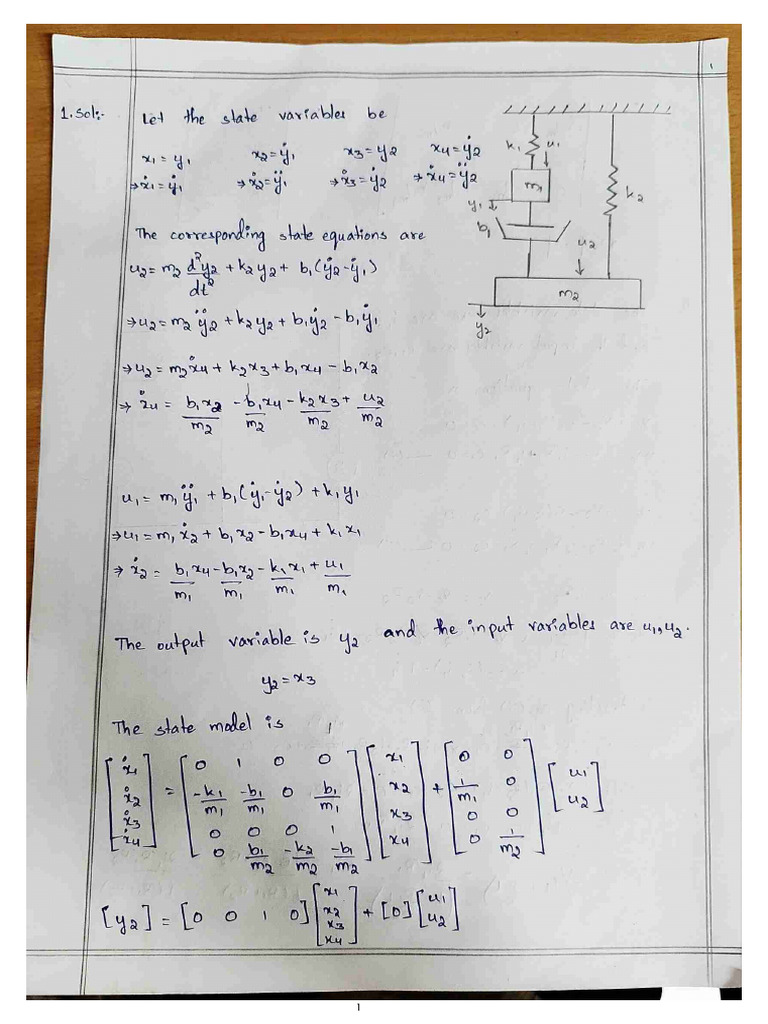 1
1. Sol:- Let the state variables be
x₁ = y₁ x₂ = ẏ₁ x₃ = y₂ x₄ = ẏ₂
⇒ ẋ₁ = ẏ₁ ⇒ ẋ₂ = ÿ₁ ⇒ ẋ₃ = ẏ₂ ⇒ ẋ₄ = ÿ₂
k₁ u₁
m₁
k₂
y₁
b₁
u₂
m₂
y₂
The corresponding state equations are
u₂ = m₂ d²y₂/dt² + k₂y₂ + b₁(ẏ₂ - ẏ₁)
⇒ u₂ = m₂ÿ₂ + k₂y₂ + b₁ẏ₂ - b₁ẏ₁
⇒ u₂ = m₂ẋ₄ + k₂x₃ + b₁x₄ - b₁x₂
⇒ ẋ₄ = b₁x₂/m₂ - b₁x₄/m₂ - k₂x₃/m₂ + u₂/m₂
u₁ = m₁ÿ₁ + b₁(ẏ₁ - ẏ₂) + k₁y₁
⇒ u₁ = m₁ẋ₂ + b₁x₂ - b₁x₄ + k₁x₁
⇒ ẋ₂ = b₁x₄/m₁ - b₁x₂/m₁ - k₁x₁/m₁ + u₁/m₁
The output variable is y₂ and the input variables are u₁, u₂.
y₂ = x₃
The state model is
[ẋ₁ ẋ₂ ẋ₃ ẋ₄] = [0 1 0 0; -k₁/m₁ -b₁/m₁ 0 b₁/m₁; 0 0 0 1; 0 b₁/m₂ -k₂/m₂ -b₁/m₂] [x₁ x₂ x₃ x₄] + [0 0; 1/m₁ 0; 0 0; 0 1/m₂] [u₁ u₂]
[y₂] = [0 0 1 0] [x₁ x₂ x₃ x₄] + [0] [u₁ u₂]
1